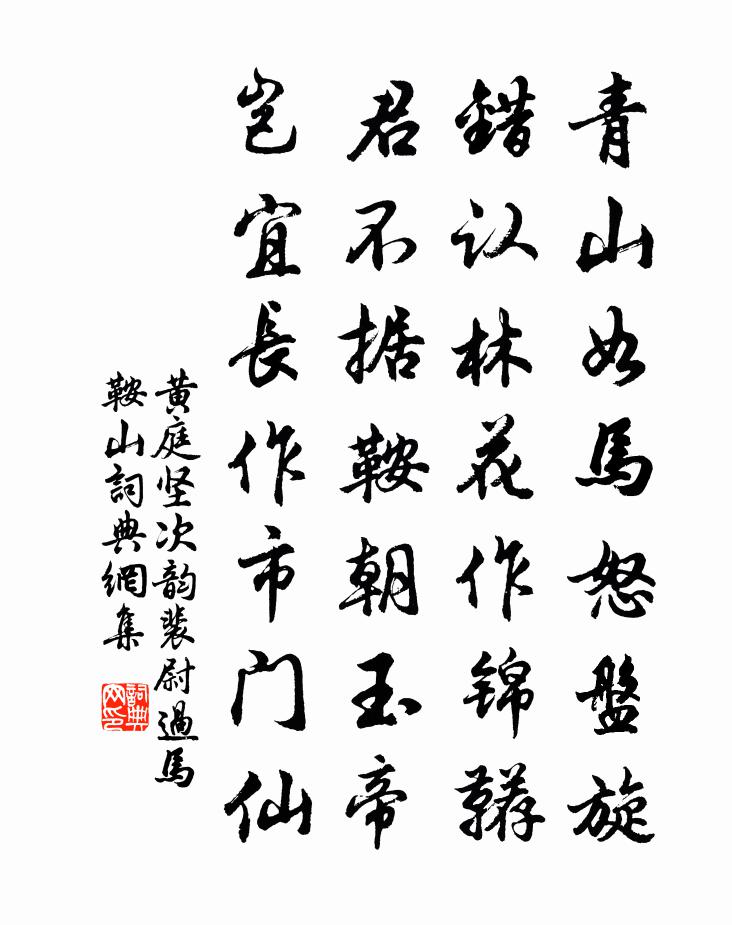 青山如馬怒盤旋
錯认林花作锦韉
君不据鞍朝玉帝
岂宜長作市门仙
黄庭坚次韵裴尉過馬
鞍山詞典網集
詞典
网印